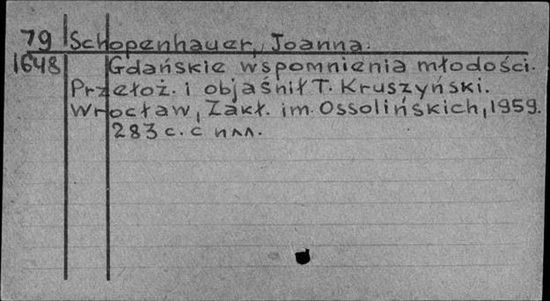 79 Schopenhauer, Joanna.
1648 Gdańskie wspomnienia młodości.
Przełoż. i objaśnił T. Kruszyński.
Wrocław, Zakł. im. Ossolińskich, 1959.
283 с. с илл.